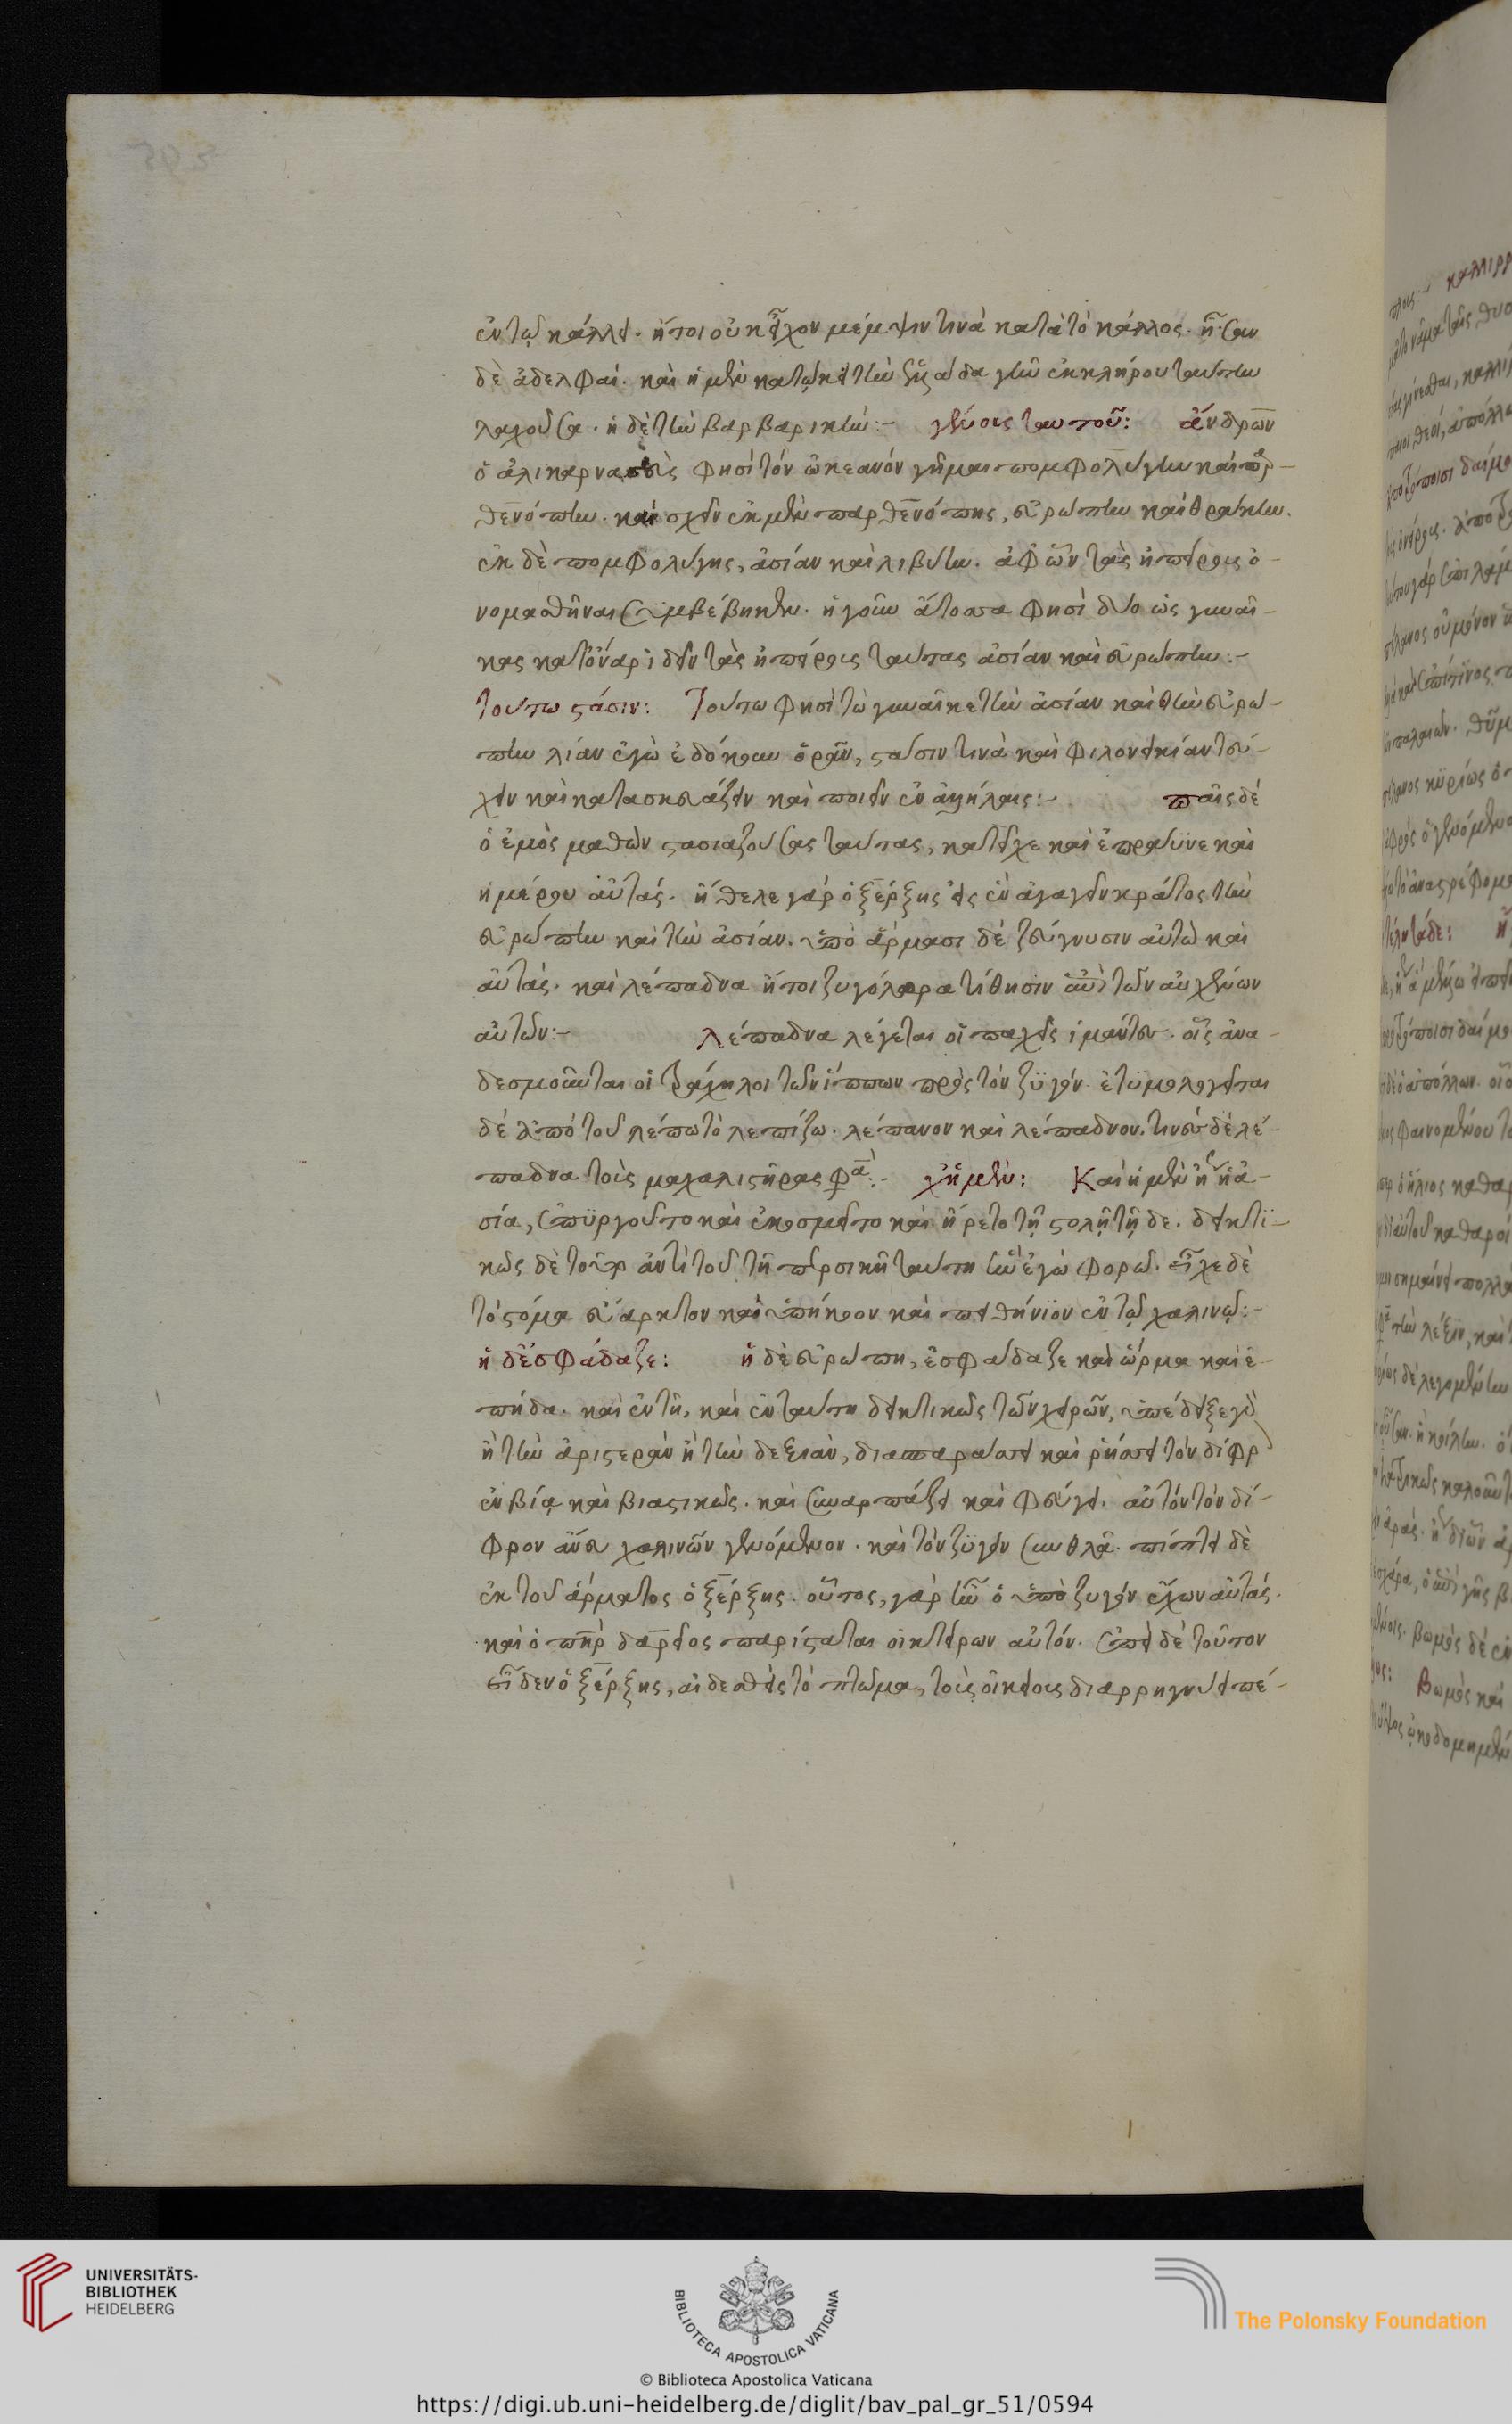 ἐν τῷ κάλλει. ἤτοι οὐκ εἶχον μέμψιν τινὰ κατὰ τὸ κάλλος. ἦσαν
δὲ ἀδελφαί. καὶ ἡ μὲν κατῴκει τὴν ἑλλάδα γῆν ἐκ κλήρου ταύτην
λαχοῦσα. ἡ δὲ τὴν βαρβαρικήν:- γένους ταυτοῦ: ἄνδρων
ὁ ἁλικαρνασεὺς φησὶ τὸν ὠκεανόν γῆμαι πομφολύγην καὶ παρ-
θενόπην. καὶ σχεῖν ἐκ μὲν παρθενόπης, εὐρώπην καὶ θράκην.
ἐκ δὲ πομφολύγης, ἀσίαν καὶ λιβύην. ἀφ' ὧν τὰς ἠπείρους ὀ-
νομασθῆναι συμβέβηκεν. ἡ γοῦν ἄτοσσα φησὶ δύο ὡς γυναῖ-
κας κατ' ὄναρ ἰδεῖν τὰς ἠπείρους ταύτας ἀσίαν καὶ εὐρώπην:-
τούτω στάσιν: Τούτω φησὶ τὼ γυναῖκε τὴν ἀσίαν καὶ τὴν εὐρώ-
πην λίαν ἐγὼ ἐδόκουν ὁρᾶν, στάσιν τινὰ καὶ φιλονεικίαν τεύ-
χειν καὶ κατασκευάζειν καὶ ποιεῖν ἐν ἀλλήλαις:- παῖς δέ
ὁ ἐμὸς μαθὼν στασιαζούσας ταύτας, κατεῖχε καὶ ἐπράϋνε καὶ
ἡμέρου αὐτάς. ἤθελε γάρ ὁ ξέρξης εἰς ἓν ἀγαγεῖν κράτος τὴν
εὐρώπην καὶ τὴν ἀσίαν. ὑπὸ ἅρμασι δέ ζεύγνυσιν αὐτὼ καὶ
αὐτάς. καὶ λέπαδνα ἤτοι ζυγόλωρα τίθησιν ἐπὶ τῶν αὐχένων
αὐτῶν:- Λέπαδνα λέγεται οἱ παχεῖς ἱμάντες. οἷς ἀνα-
δεσμοῦνται οἱ τράχηλοι τῶν ἵππων πρὸς τὸν ζυγόν. ἐτυμολογεῖται
δέ ἀπὸ τοῦ λέπω τὸ λεπίζω. λέπανον καὶ λέπαδνον. τινὲς δὲ λέ-
παδνα τοὺς μασχαλιστῆρας φασὶ:- χἡ μὲν: Καὶ ἡ μὲν ἤγουν ἡ ἀ-
σία, ἐπυργοῦτο καὶ ἐκοσμεῖτο καὶ ᾕρετο τῇ στολῇ τῇδε. δεικτι-
κῶς δὲ τοῦτο ἀντὶ τοῦ τῇ περσικῇ ταύτῃ ἣν ἐγὼ φορῶ. εἶχε δὲ
τὸ στόμα εὔαρκτον καὶ ὑπήκοον καὶ πειθήνιον ἐν τῷ χαλινῷ:-
ἡ δ' ἐσφάδαζε: ἡ δὲ εὐρώπη, ἐσφάδαζε καὶ ὥρμα καὶ ἐ-
πήδα. καὶ ἐν τῇ, καὶ ἐν ταύτῃ δεικτικῶς τῶν χειρῶν, ὑπέδειξε γὰρ
ἢ τὴν ἀριστερὰν ἢ τὴν δεξιὰν, διασπαράσσει καὶ ῥήσσει τὸν δίφρον
ἐν βίᾳ καὶ βιαστικῶς. καὶ συναρπάζει καὶ φεύγει. αὐτὸν τὸν δί-
φρον ἄνευ χαλινῶν γενόμενον. καὶ τὸν ζυγὸν συνθλᾷ. πίπτει δὲ
ἐκ τοῦ ἅρματος ὁ ξέρξης. οὗτος, γὰρ ἦν ὁ ὑπὸ ζυγόν ἔχων αὐτάς.
καὶ ὁ πατὴρ δαρεῖος παρίσταται οἰκτείρων αὐτόν. ἐπεὶ δὲ τοῦτον
εἶδεν ὁ ξέρξης, αἰδεσθεὶς τὸ πτῶμα, τοῖς οἰκείοις διαρρηγνύει πέ-
UNIVERSITÄTS-
BIBLIOTHEK
HEIDELBERG
BIBLIOTECA APOSTOLICA VATICANA
The Polonsky Foundation
© Biblioteca Apostolica Vaticana
https://digi.ub.uni-heidelberg.de/diglit/bav_pal_gr_51/0594